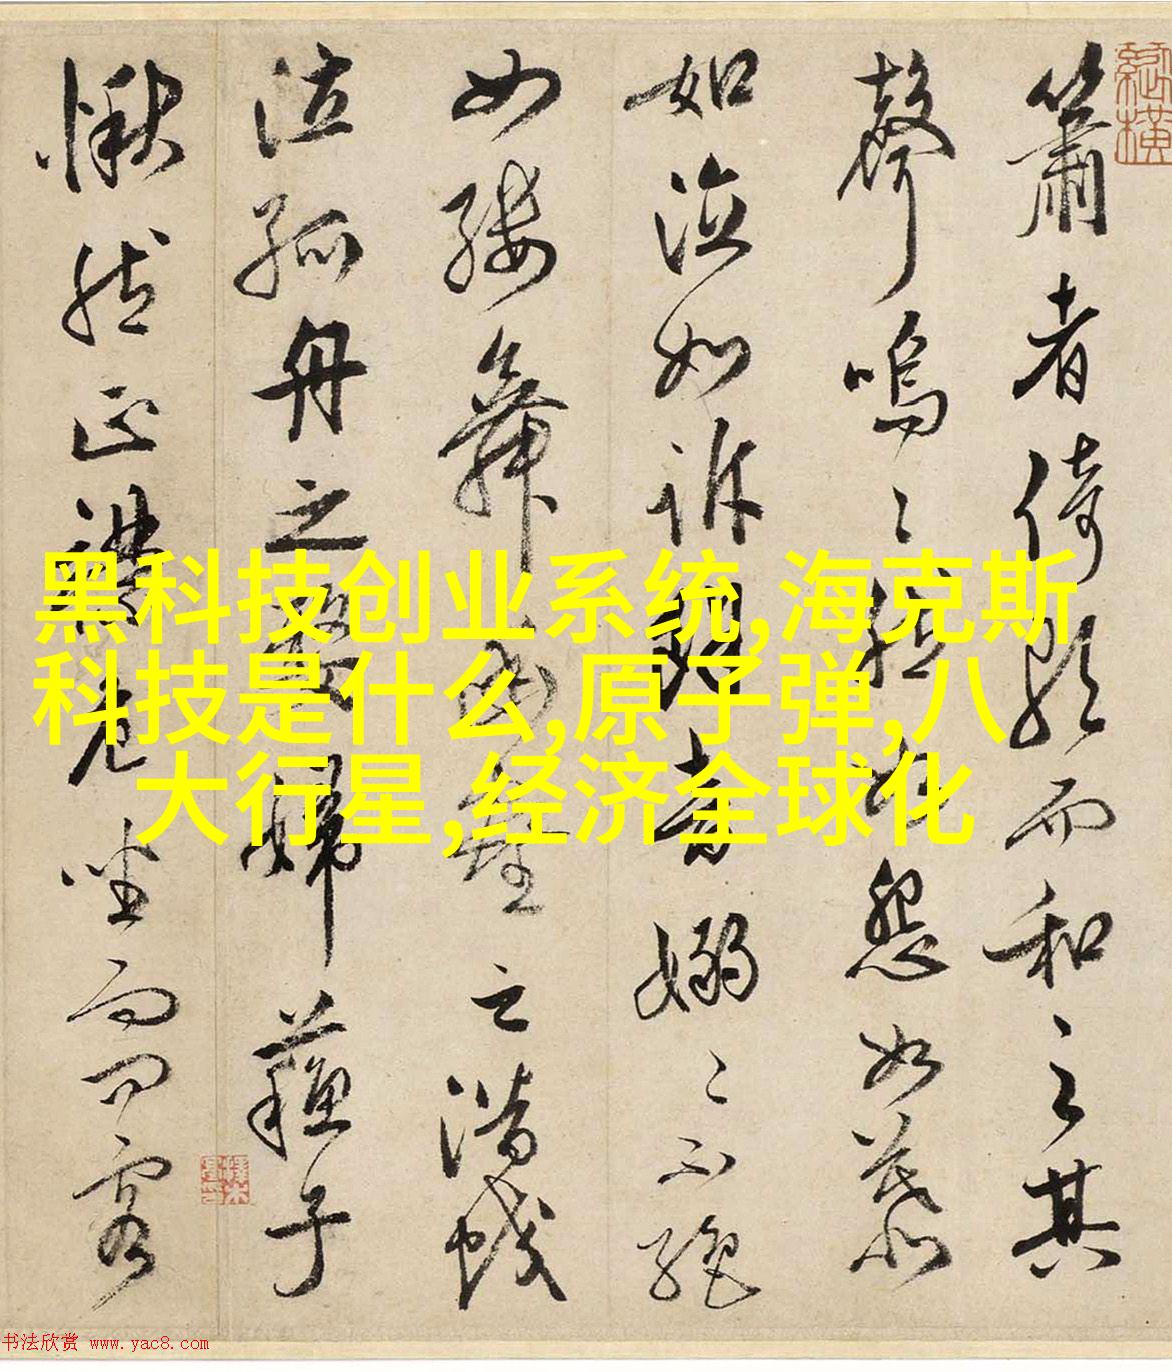 簫者倚歌而和之其
聲嗚〻然如怨如慕
如泣如訴餘音嫋〻不絕
如縷舞幽壑之潛蛟
泣孤舟之嫠婦蘓子
愀然正襟危坐而問客
黑科技创业系统,海克斯
科技是什么,原子弹,八
大行星,经济全球化
书法欣赏 www.yac8.com